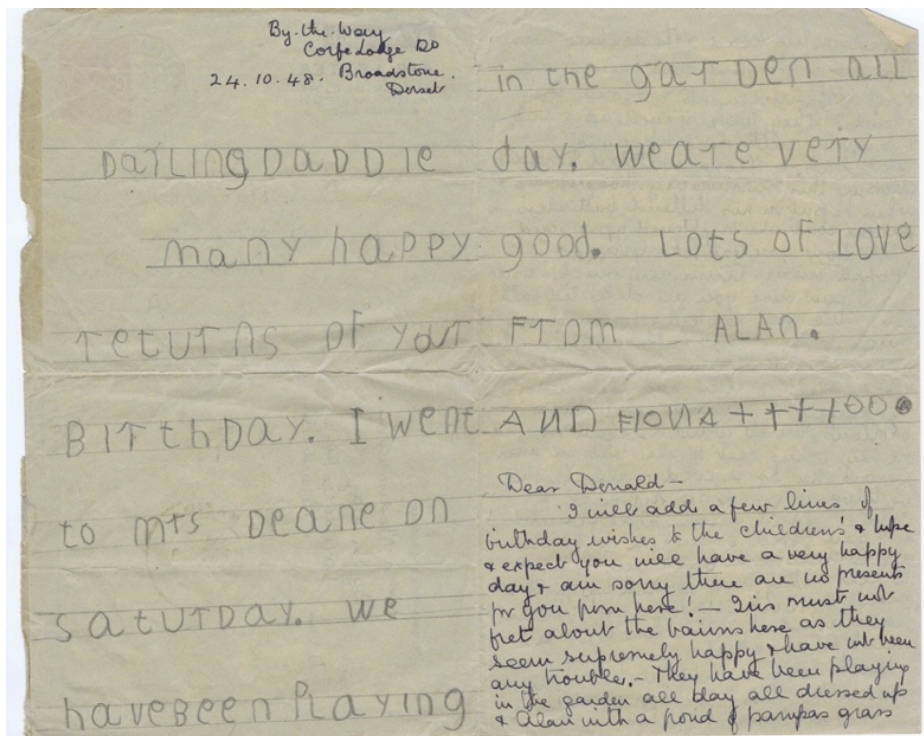 By-the-Way
Corfe Lodge Rd
24.10.48. Broadstone.
Dorset
DarLing DaDDIe
many happy
returns of your
BIrthDay. I went
to mrs Deane on
saturDay. We
haveBeen PLayIng
in the garDen all
day. we are very
good. Lots of Love
From ALAn.
AND FIONA ++++000
Dear Donald -
I will add a few lines of
birthday wishes to the children's & hope
& expect you will have a very happy
day & am sorry there are no presents
for you from here! - must not
fret about the bairns here as they
seem supremely happy & have not been
any trouble. - They have been playing
in the garden all day all dressed up
& Alan with a frond of pampas grass